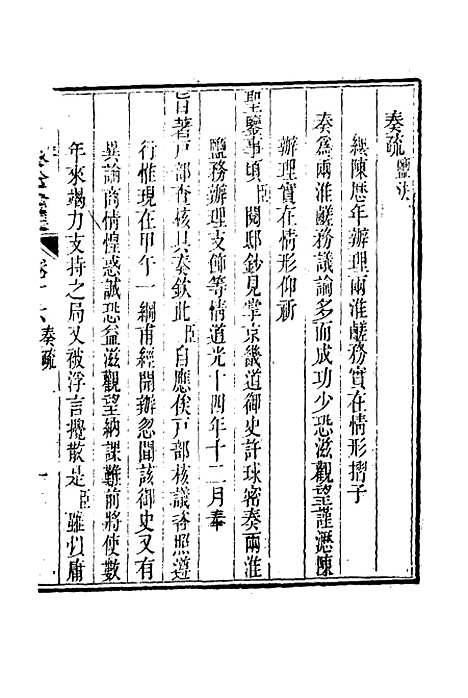 奏疏 鹽法
縷陳歷年辦理兩淮鹺務實在情形摺子
奏爲兩淮鹺務議論多而成功少恐滋觀望謹瀝陳
辦理實在情形仰祈
聖鑒事頃臣閱邸鈔見掌京畿道御史許球密奏兩淮
鹽務辦理支飾等情道光十四年十二月奉
旨著戶部查核具奏欽此臣自應俟戶部核議咨照遵
行惟現在甲午一綱甫經開辦忽聞該御史又有
異論商情惶惑誠恐益滋觀望納課難前將使數
年來竭力支持之局又被浮言攪散是臣雖似庸
奏疏